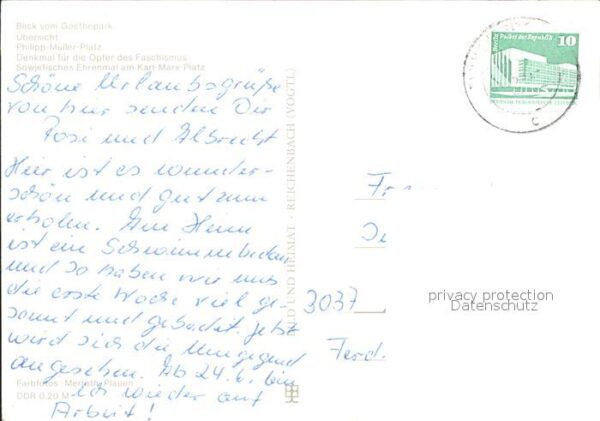 Blick vom Goethepark
Übersicht
Philipp-Müller-Platz
Denkmal für die Opfer des Faschismus
Sowjetisches Ehrenmal am Karl-Marx-Platz
Schöne Urlaubsgrüße
von hier senden Dir
Rosi und Albrecht
Hier ist es wunder-
schön und gut zum
erholen. Am Heim
ist ein Schwimmbecken
und so haben wir uns
die erste Woche viel ge-
sonnt und gebadet. Jetzt
wird sich die Umgegend
angesehen. Ab 24.6. bin
ich wieder auf
Arbeit!
Farbfotos: Plauen
DDR 0,20 M
BILD UND HEIMAT · REICHENBACH (VOGTL)
Berlin Palast der Republik
10
3037
Ferd.
privacy protection
Datenschutz